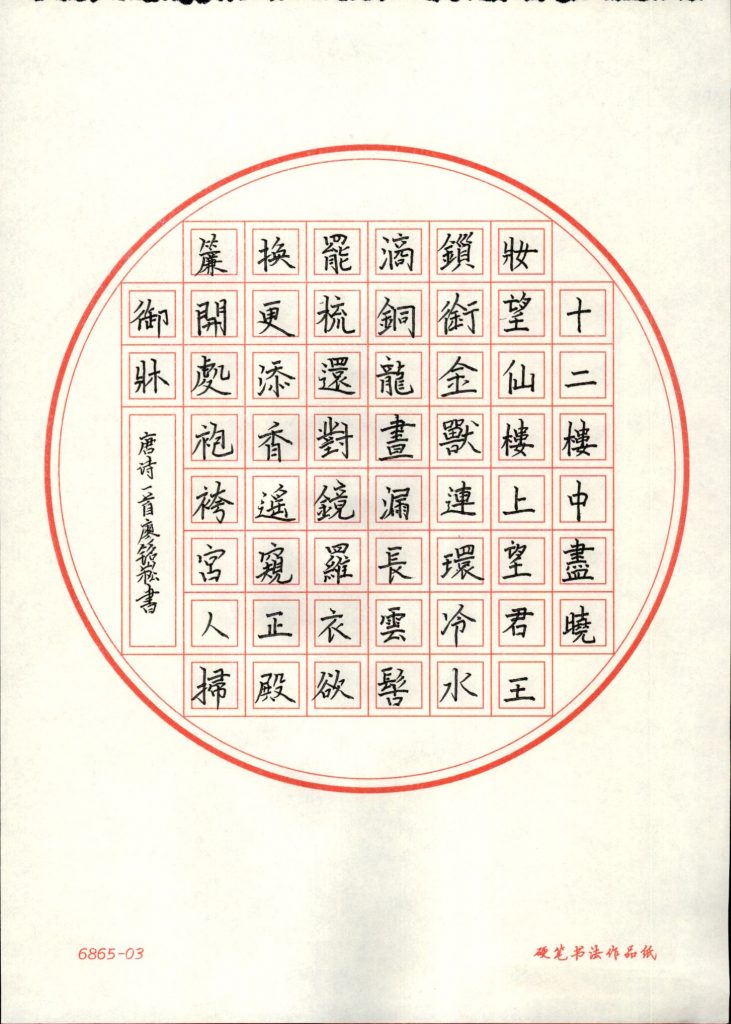 十二樓中盡曉
妝望仙樓上望君王
鎖銜金獸連環冷水
滴銅龍晝漏長雲髻
罷梳還對鏡羅衣欲
換更添香遙窺正殿
簾開處袍袴宮人掃
御牀
唐诗一首廖銘書
6865-03
硬笔书法作品纸